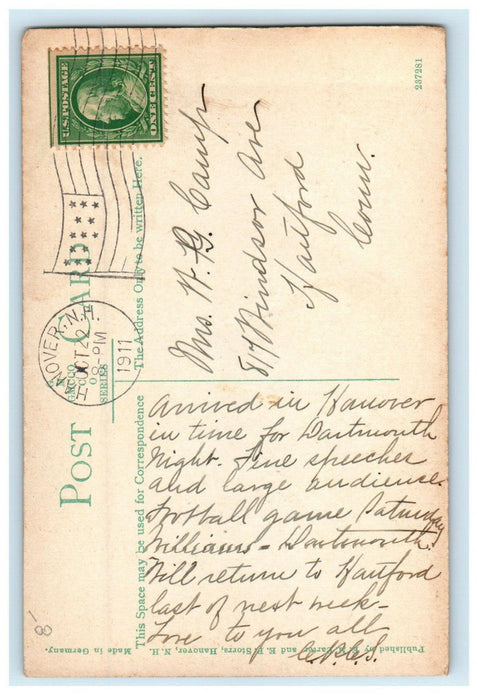 U.S. POSTAGE
ONE CENT
HANOVER, N.H.
OCT 20
8 - PM
1911
POST CARD
OCTO
CO
SERIES
The Address Only to be written Here.
This Space may be used for Correspondence
237281
Mrs. W. B. Camp
817 Windsor Ave
Hartford
Conn.
Arrived in Hanover
in time for Dartmouth
Night. Fine speeches
and large audience.
Football game Saturday
Williams - Dartmouth.
Will return to Hartford
last of next week -
Love to you all
8-
Published by and E. P. Storrs, Hanover, N. H.
Made in Germany.